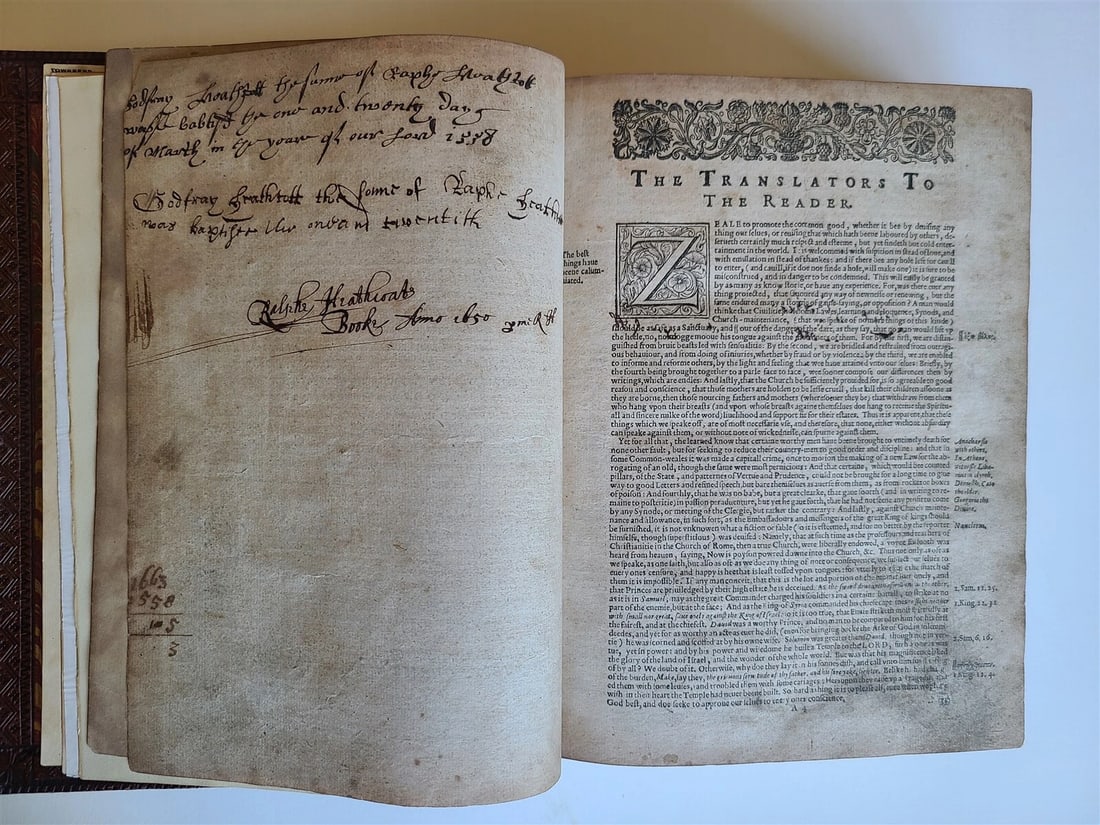 Godfray Heathcott the sunne of Raphe Heathcot
was babtised the one and twenty day
of March in the year of our Lord 1558
Godfray Heathcott the sonne of Raphe Heathcott
was baptised the one and twentith
Ralphe Heathcoate
Booke Anno 1650
1663
1558
105
3
THE TRANSLATORS TO
THE READER.
The best
things haue
beene calum-
niated.
ZEALE to promote the common good, whether it bee by deuising any
thing our selues, or reuising that which hath beene laboured by others, de-
serueth certainly much respect and esteeme, but yet findeth but cold enter-
tainment in the world. It is welcommed with suspicion in stead of loue, and
with emulation in stead of thankes: and if there bee any hole left for cauill
to enter, (and cauill, if it doe not finde a hole, will make one) it is sure to be
misconstrued, and in danger to be condemned. This will easily be granted
by as many as know storie, or haue any experience. For, was there euer any
thing proiected, that sauoured any way of newnesse or renewing, but the
same endured many a storme of gaine-saying, or opposition? A man would
thinke that Ciuilitie, wholesome Lawes, learning and eloquence, Synods, and
Church-maintenance, (that we speake of no more things of this kinde)
should be as safe as a Sanctuary, and out of the danger of the dare, as they say, that no man would lift vp
the heele, no, nor dogge mooue his tongue against the motioners of them. For by the first, we are distin-
guished from bruit beasts led with sensualitie: By the second, we are bridled and restrained from outragi-
ous behauiour, and from doing of iniuries, whether by fraud or by violence: by the third, we are enabled
to informe and reforme others, by the light and feeling that wee haue attained vnto our selues: Briefly, by
the fourth being brought together to a parle face to face, wee sooner compose our differences then by
writings, which are endles: And lastly, that the Church be sufficiently prouided for, is so agreeable to good
reason and conscience, that those mothers are holden to be lesse cruell, that kill their children assoone as
they are borne, then those nourcing fathers and mothers (wheresoeuer they be) that withdraw from them
who hang vpon their breasts (and vpon whose breasts againe themselues doe hang to receiue the Spiritu-
all and sincere milke of the word) liuelihood and support fit for their estates. Thus it is apparent, that these
things which we speake off, are of most necessarie vse, and therefore, that none, either without absurdity
can speake against them, or without note of wickednesse, can spurne against them.
Yet for all that, the learned know that certaine worthy men haue beene brought to vntimely death for
none other fault, but for seeking to reduce their country-men to good order and discipline: and that in
some Common-weales it was made a capitall crime, once to motion the making of a new Law for the ab-
rogating of an old, though the same were most pernicious: And that certaine, which would bee counted
pillars, of the State, and patternes of Vertue and Prudence, could not be brought for a long time to giue
way to good Letters and refined speech, but bare themselues as auerse from them, as from rockes or boxes
of poison: And fourthly, that he was no babe, but a great clearke, that gaue foorth (and in writing to re-
maine to posteritie) in passion peraduenture, but yet he gaue foorth, that he had not seene any profit to come
by any Synode, or meeting of the Clergie, but rather the contrary: And lastly, against Church mainte-
nance and allowance, in such sort, as the Embassadours and messengers of the great King of kings should
be furnished, it is not vnknowen what a fiction or fable (so it is esteemed, and for no better by the reporter
himselfe, though superstitious) was deuised: Namely, that at such time as the professours and teachers of
Christianitie in the Church of Rome, then a true Church, were liberally endowed, a voyce forsooth was
heard from heauen, saying, Now is poyson powred downe into the Church, &c. Thus not only as oft as
we speake, as one saith, but also as oft as we doe any thing of note or consequence, we subiect our selues to
euery ones censure, and happy is hee that is least tossed vpon tongues: for vtterly to escape the snatch of
them it is impossible. If any man conceit, that this is the lot and portion of the meaner sort onely, and
that Princes are priuiledged by their high estate, he is deceiued. As the sword deuoureth aswell one as the other,
as it is in Samuel, nay as the great Commander charged his souldiers in a certaine battell, to strike at no
part of the enemie, but at the face; And as the King of Syria commanded his chiefe captaines to fight neither
with small nor great, saue onely against the King of Israel: so it is too true, that Enuie striketh most spitefully at
the fairest, and at the chiefest. Dauid was a worthy Prince, and no man to be compared to him for his first
deedes, and yet for as worthy an acte as euer he did, (euen for bringing backe the Arke of God in solemni-
tie) he was scorned and scoffed at by his owne wife. Salomon was greater then Dauid, though not in ver-
tue, yet in power: and by his power and wisedome he built a Temple to the LORD, such a one as was
the glory of the land of Israel, and the wonder of the whole world. But was that his magnificence liked
of by all? We doubt of it. Otherwise, why doe they lay it in his sonnes dish, and call vnto him for easing
of the burden, Make, say they, the grieuous seruitude of thy father, and his sore yoke, lighter. Belike he had charg-
ed them with some leuies, and troubled them with some cariages; Hereupon they raise vp a tragedie, and
wish in their heart the Temple had neuer bene built. So hard a thing it is to please all, euen when we please
God best, and doe seeke to approue our selues to euery ones conscience.
Anacharsis
with others.
In Athens,
the elder.
Gregorie the
Diuine.
Nauclerus.
2.Sam. 11.25.
1.King. 22.31.
2.Sam. 6.16.
1.King. 12.4.
A 4